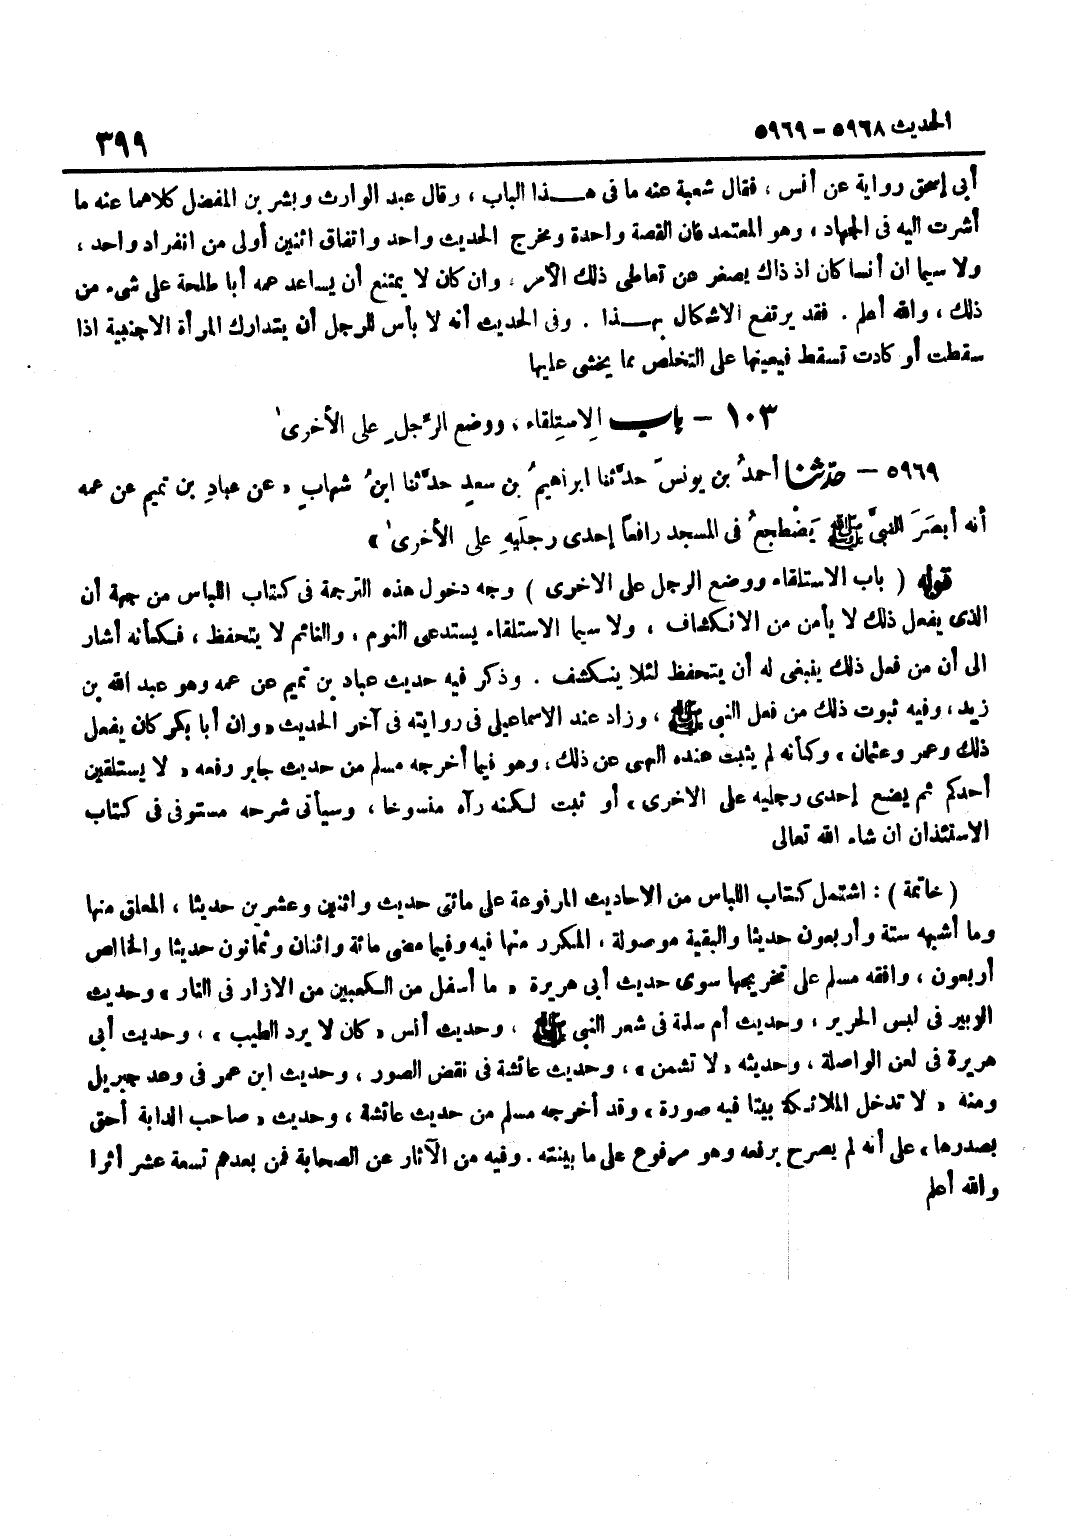 الحديث ٥٩٦٨ - ٥٩٦٩
٣٩٩
أبى إسحق رواية عن أنس ، فقال شعبة عنه ما فى هـذا الباب ، وقال عبد الوارث وبشر بن المفضل كلاهما عنه ما
أشرت اليه فى الجهاد ، وهو المعتمد فان القصة واحدة ومخرج الحديث واحد واتفاق اثنين أولى من انفراد واحد ،
ولا سيما ان أنسا كان اذ ذاك يصغر عن تعاطى ذلك الأمر ، وان كان لا يمتنع أن يساعد عمه أبا طلحة على شىء من
ذلك ، والله أعلم . فقد يرتفع الاشكال بهـذا . وفى الحديث أنه لا بأس للرجل أن يتدارك المرأة الاجنبية اذا
سقطت أو كادت تسقط فيعينها على التخلص مما يخشى عليها
١٠٣ - باب الِاستِلقاء ، ووضع الرِّجلِ على الأخرىٰ
٥٩٦٩ - حدّثنا أحمدُ بن يونسَ حدَّثنا ابراهيمُ بن سعدٍ حدَّثنا ابنُ شهابٍ « عن عبادِ بن تميم عن عمه
أنه أبصَرَ النبىَّ ﷺ يَضْطجعُ فى المسجد رافعاً إحدى رجلَيهِ على الأخرىٰ »
قوله ( باب الاستلقاء ووضع الرجل على الاخرى ) وجه دخول هذه الترجمة فى كتاب اللباس من جهة أن
الذى يفعل ذلك لا يأمن من الانكشاف ، ولا سيما الاستلقاء يستدعى النوم ، والنائم لا يتحفظ ، فكأنه أشار
الى أن من فعل ذلك ينبغى له أن يتحفظ لئلا ينكشف . وذكر فيه حديث عباد بن تميم عن عمه وهو عبد الله بن
زيد ، وفيه ثبوت ذلك من فعل النبى ﷺ ، وزاد عند الاسماعيلى فى روايته فى آخر الحديث « وان أبا بكر كان يفعل
ذلك وعمر وعثمان » وكأنه لم يثبت عنده النهى عن ذلك ، وهو فيما أخرجه مسلم من حديث جابر رفعه « لا يستلقين
أحدكم ثم يضع إحدى رجليه على الاخرى » أو ثبت لكنه رآه منسوخا ، وسيأتى شرحه مستوفى فى كتاب
الاستئذان ان شاء الله تعالى
( خاتمة ) : اشتمل كتاب اللباس من الاحاديث المرفوعة على مائتى حديث واثنين وعشرين حديثا ، المعلق منها
وما أشبهه ستة وأربعون حديثا والبقية موصولة ، المكرر منها فيه وفيما مضى مائة واثنان وثمانون حديثا والخالص
أربعون ، وافقه مسلم على تخريجها سوى حديث أبى هريرة « ما أسفل من الكعبين من الازار فى النار » وحديث
الزبير فى لبس الحرير ، وحديث أم سلمة فى شعر النبى ﷺ ، وحديث أنس « كان لا يرد الطيب » ، وحديث أبى
هريرة فى لعن الواصلة ، وحديثه « لا تشمن » ، وحديث عائشة فى نقض الصور ، وحديث ابن عمر فى وعد جبريل
ومنه « لا تدخل الملائكة بيتا فيه صورة » وقد أخرجه مسلم من حديث عائشة ، وحديث « صاحب الدابة أحق
بصدرها » على أنه لم يصرح برفعه وهو مرفوع على ما بينته . وفيه من الآثار عن الصحابة فمن بعدهم تسعة عشر أثرا
والله أعلم